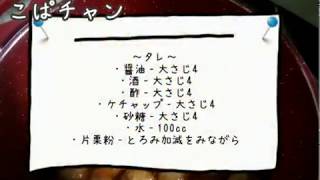 こぱチャン
～タレ～
・醤油 - 大さじ4
・酒 - 大さじ4
・酢 - 大さじ4
・ケチャップ - 大さじ4
・砂糖 - 大さじ4
・水 - 100cc
・片栗粉 - とろみ加減をみながら